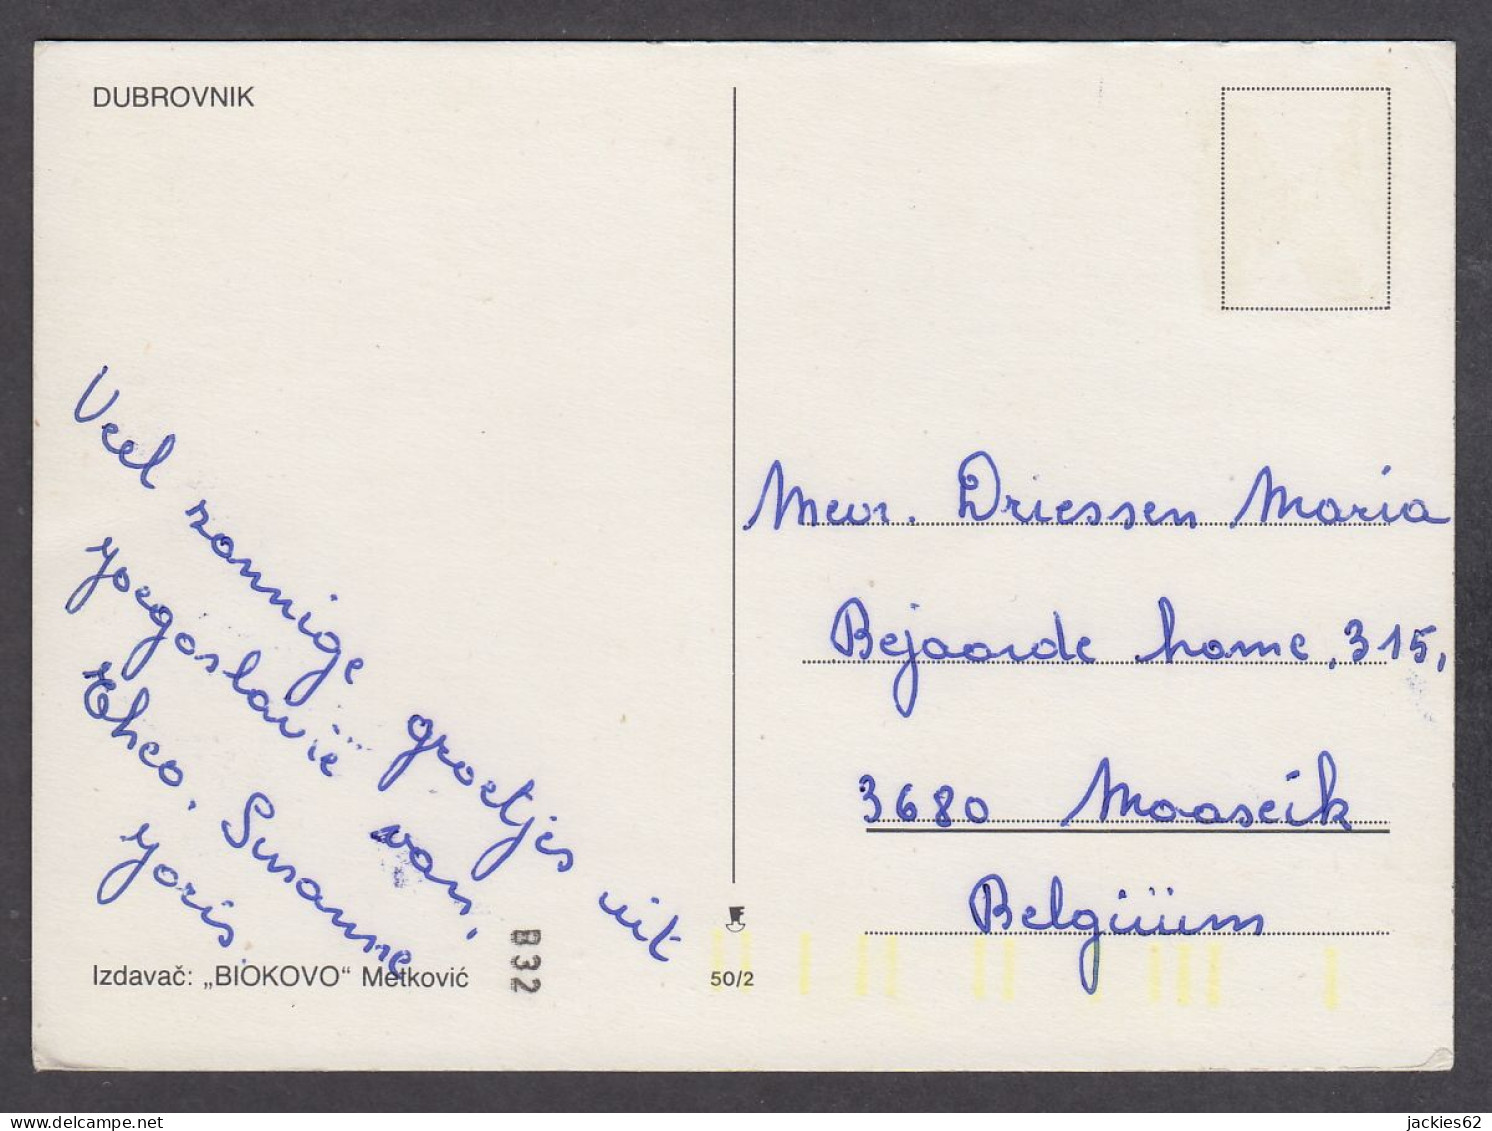 DUBROVNIK
Veel zonnige groetjes uit
Yoegoslavië van,
Elheo, Susanne
Yoris.
Izdavač: „BIOKOVO“ Metković
B32
50/2
Mevr. Driessen Maria
Bejaarde home, 315,
3680 Maaseik
Belgiüum
jackies62